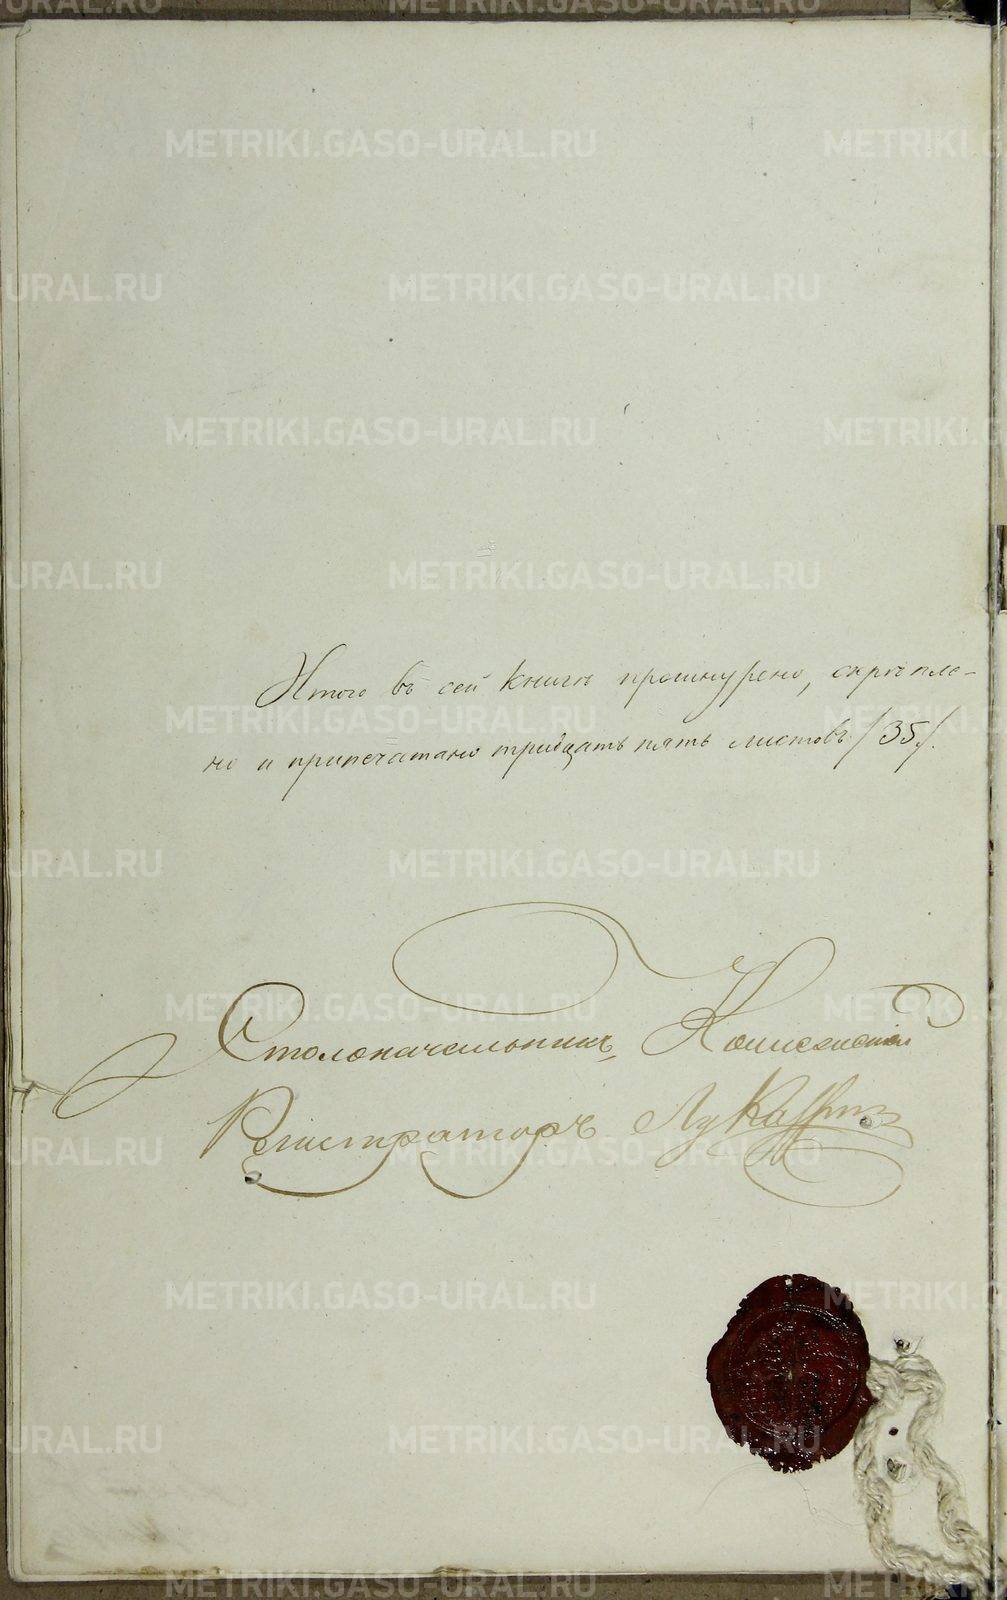 Итого въ сей книгѣ прошнурено, скрѣпле-
но и припечатано тридцать пять листовъ /35/.
Столоначальникъ, Коллежскій
Регистраторъ
METRIKI.GASO-URAL.RU